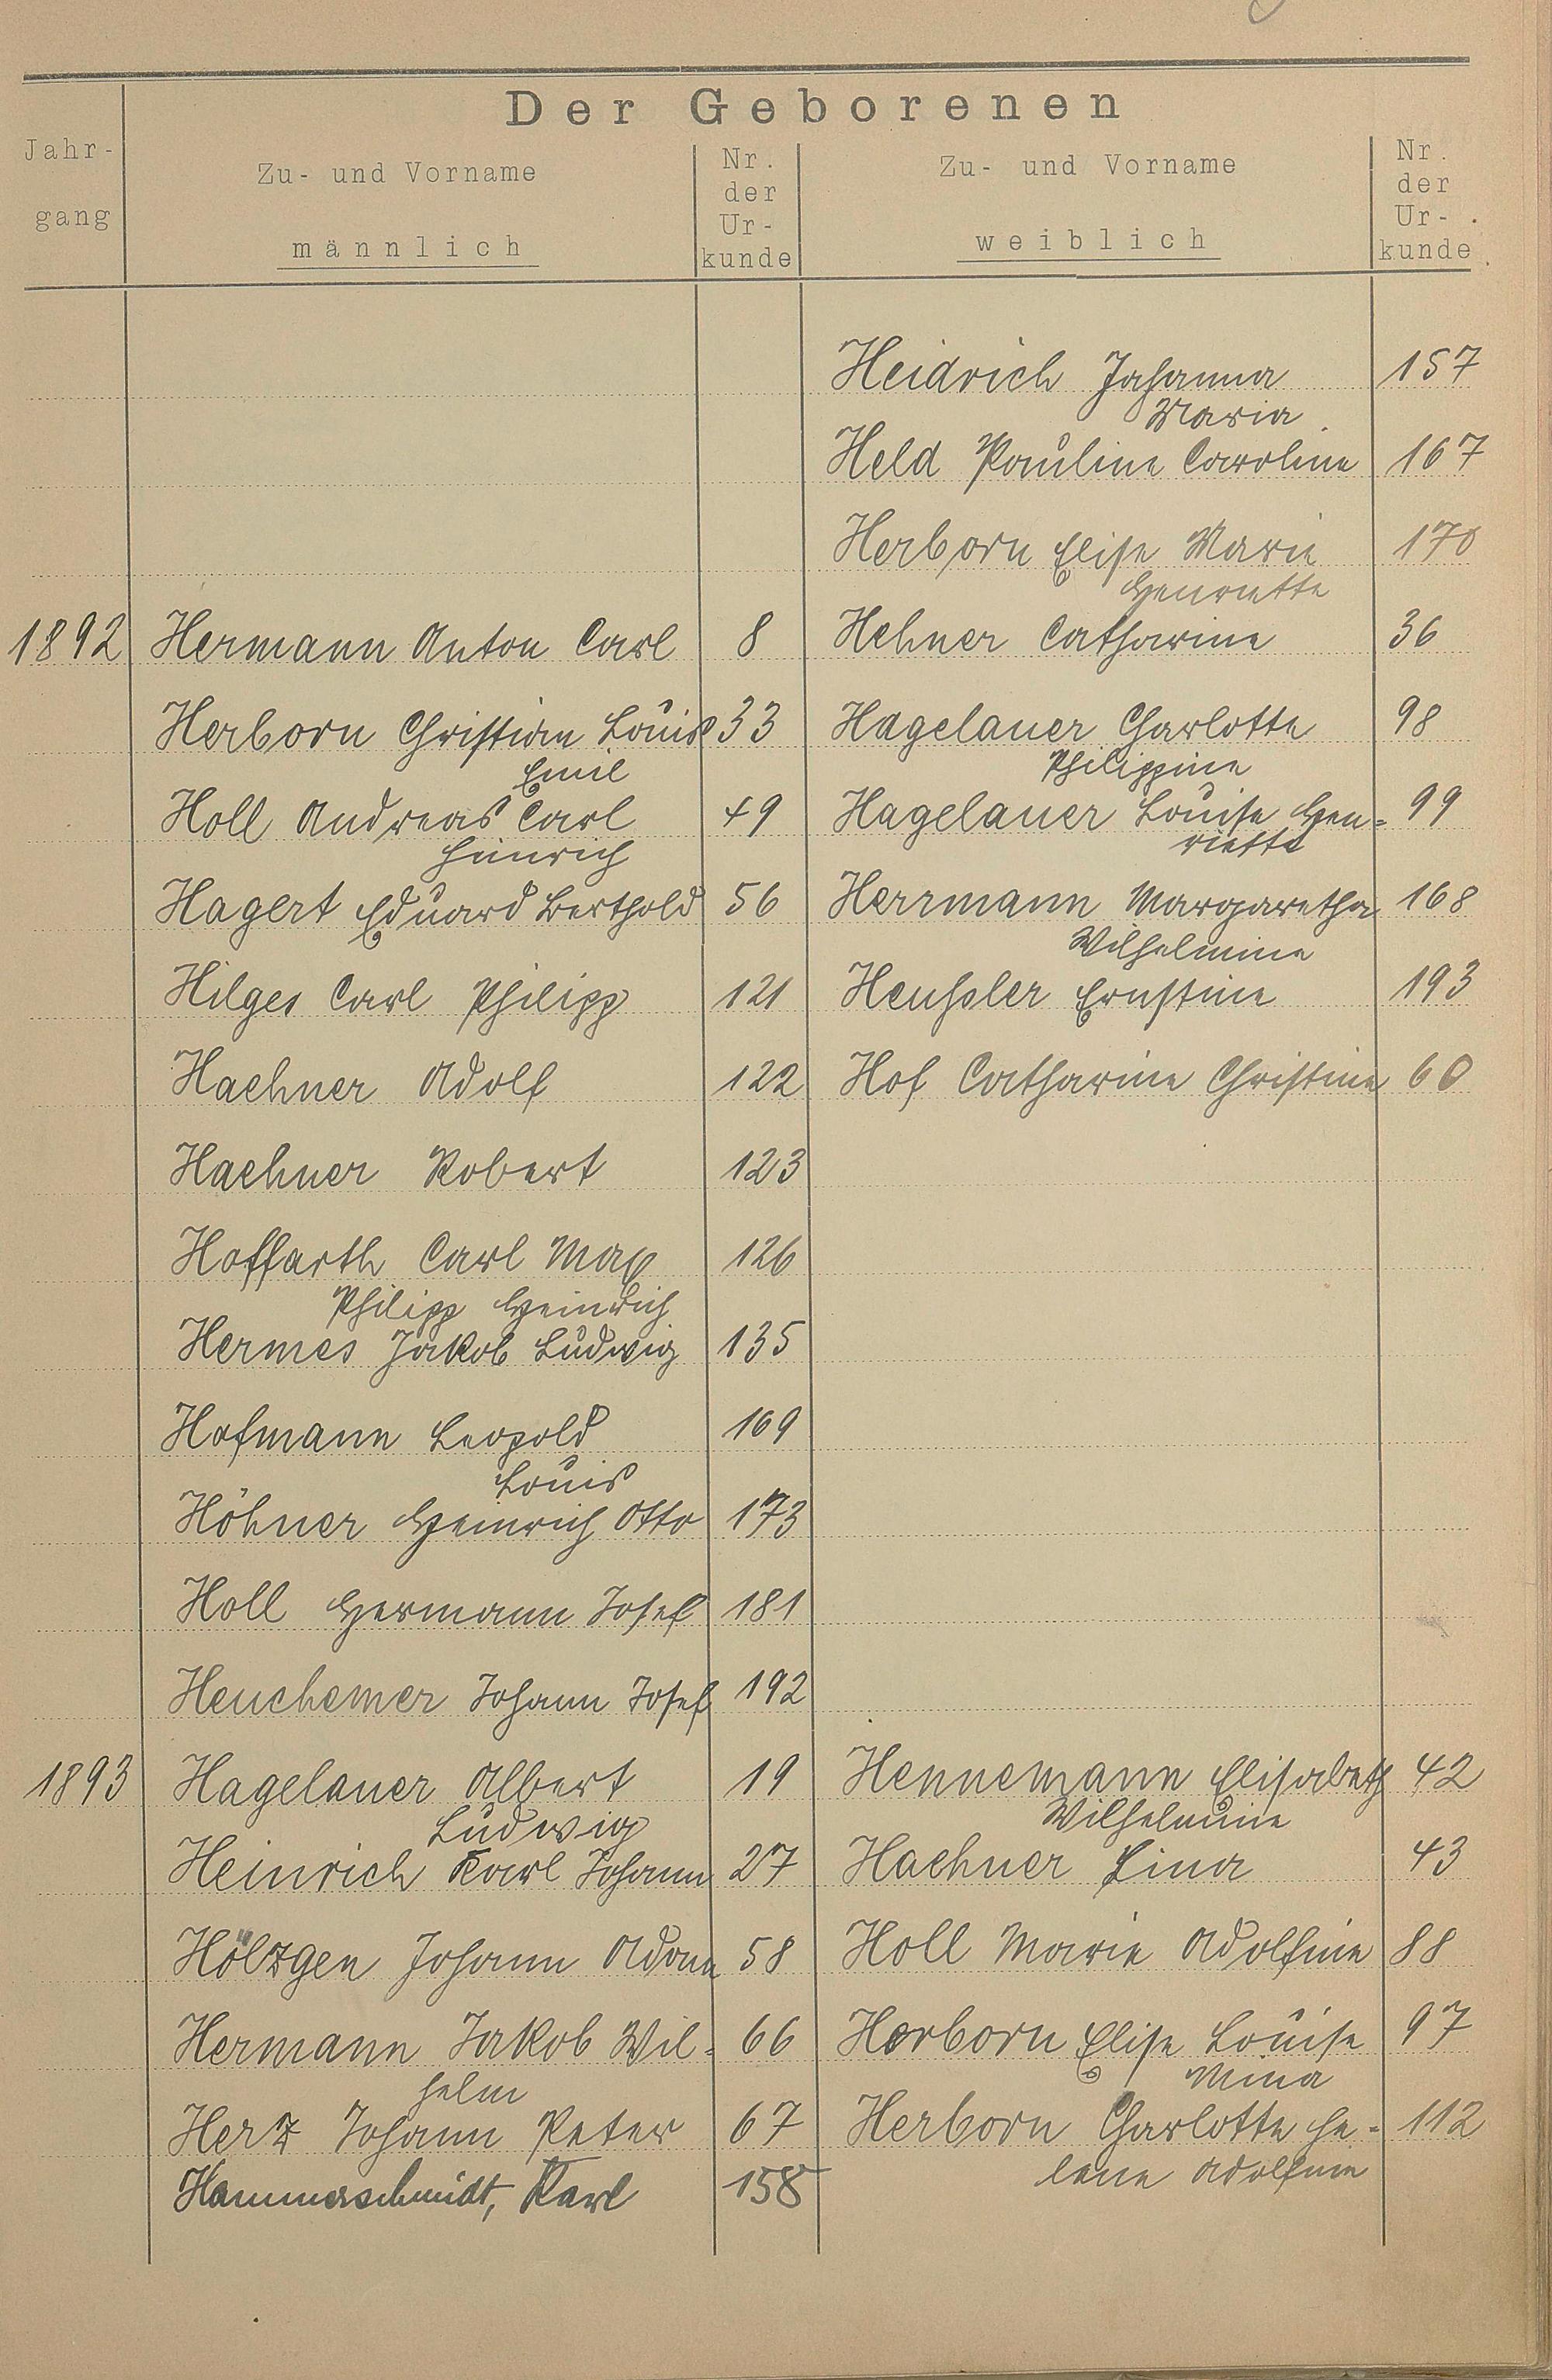 Der Geborenen
Jahr-
gang
Zu- und Vorname
männlich
Nr.
der
Ur-
kunde
Zu- und Vorname
weiblich
Nr.
der
Ur-
kunde
Heidrich Johanna 157
Maria
Held Pauline Caroline 167
Herborn Elise Marie 170
Henriette
1892 Hermann Anton Carl 8 Hehner Catharine 36
Herborn Christian Louis 33 Hagelauer Charlotte 98
Emil Philippine
Holl Andreas Carl 49 Hagelauer Louise Hen= 99
Heinrich riette
Hagert Eduard Berthold 56 Herrmann Margaretha 168
Wilhelmine
Hilges Carl Philipp 121 Heußler Ernstine 193
Haehner Adolf 122 Hof Catharine Christine 60
Haehner Robert 123
Hoffarth Carl Max 126
Philipp Heinrich
Hermes Jakob Ludwig 135
Hofmann Leopold 169
Louis
Höhner Heinrich Otto 173
Holl Hermann Josef 181
Heuchemer Johann Josef 192
1893 Hagelauer Albert 19 Hennemann Elisabeth 42
Ludwig Wilhelmine
Heinrich Karl Johann 27 Haehner Lina 43
Hölzgen Johann Adam 58 Holl Marie Adolfine 88
Hermann Jakob Wil= 66 Herborn Elise Louise 97
helm Mina
Herz Johann Peter 67 Herborn Charlotte He= 112
Hammerschmidt, Karl 158 lene Adolfine